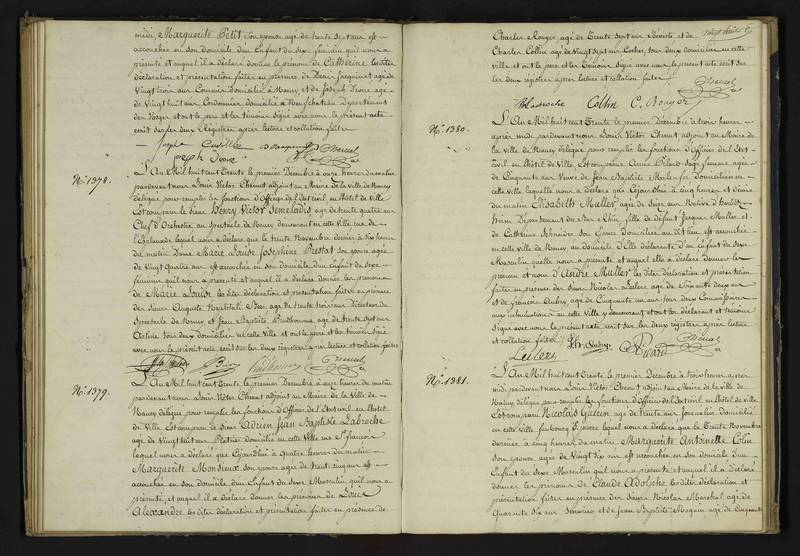 midi, Marguerite Petit son épouse agée de trente sept ans est
accouchée en son domicile d'un Enfant du sexe féminin qu'il nous a
présenté et auquel il a déclaré donner le prénom de Catherine les dites
déclaration et présentation faites en présence de Denis Jacquinet agé de
Vingt trois ans Domicilié à Nancy et de Joseph agé de
Vingt huit ans, Cordonnier domicilié à Neufchateau Département
des Vosges et ont le père et les témoins signé avec nous le présent acte
écrit sur les deux Registres après lecture et collation faites
No. 1378.
L'An Mil huit cent Trente le premier Décembre à onze heures du matin
pardevant nous Louis Victor Chenut adjoint au Maire de la Ville de Nancy
délégué pour remplir les fonctions d'Officier de l'Etat civil, en l'hôtel de Ville
Est comparu le Sieur Henry Victor Semeladis agé de trente quatre ans
Chef d'Orchestre au Spectacle de Nancy demeurant en cette Ville rue de
l'Esplanade lequel nous a déclaré que le trente Novembre dernier à six heures
du matin Dame Marie Louise Josephine Prestat son épouse agée
de Vingt Quatre ans est accouchée en son domicile d'un Enfant du sexe
féminin qu'il nous a présenté et auquel il a déclaré donner les prénoms
de Marie Louise les dites déclaration et présentation faites en présence
des Sieurs Auguste agé de trente trois ans Directeur du
Spectacle de Nancy, et Jean Baptiste Prudhomme agé de trente sept ans
Artiste tous deux domiciliés en cette Ville et ont le père et les témoins signé
avec nous le présent acte écrit sur les deux registres après lecture et collation faites
No. 1379.
L'An Mil huit cent Trente le premier Décembre à onze heures du matin
pardevant nous Louis Victor Chenut adjoint au Maire de la Ville de
Nancy délégué pour remplir les fonctions d'Officier de l'Etat civil en l'hôtel
de Ville Est comparu le Sieur Adrien Jean Baptiste Labroche
agé de Vingt huit ans Platrier domicilié en cette Ville rue St. francois
lequel nous a déclaré que Cejourd'hui à quatre heures du matin
Marguerite Monsieux son épouse agée de trente cinq ans est
accouchée en son domicile d'un Enfant du sexe Masculin qu'il nous a
présenté, et auquel il a déclaré donner les prénoms de Louis
Alexandre les dites déclaration et présentation faites en présence de
Charles Rouyer agé de Trente sept ans et de
Charles Collin agé de Vingt sept ans Cocher, tous deux domiciliés en cette
ville et ont le père et les Témoins signé avec nous le présent acte écrit sur
les deux registres après lecture et collation faites
Labroche Collin C. Rouyer
No. 1380.
L'An Mil huit cent Trente le premier Décembre à trois heures
après midi pardevant nous Louis Victor Chenut adjoint au Maire de
la Ville de Nancy délégué pour remplir les fonctions d'Officier de l'Etat
civil en l'hôtel de Ville Est comparue Anne Pitard Sage femme agée
de Cinquante ans Veuve de Jean Baptiste domiciliée en
cette Ville laquelle nous a déclaré que Cejourd'hui à cinq heures et demie
du matin Elisabeth Muller agée de Seize ans Native d'
Département du Bas Rhin, fille de défunt Jacques Muller et
de Catherine Schneider son Epouse domiciliée au dit lieu est accouchée
en cette Ville de Nancy, au domicile d'Elle déclarante d'un Enfant du sexe
Masculin qu'elle nous a présenté et auquel elle a déclaré donner les
prénom et nom d'André Muller les dites déclaration et présentation
faites en présence des Sieurs Nicolas Leclerc agé de Soixante deux ans
et de François Aubry agé de Cinquante un ans tous deux Commissionnaires
aux inhumations en cette Ville y demeurant et ont les déclarant et témoins
signé avec nous le présent acte écrit sur les deux registres après lecture
et collation faites
Leclerc Fr. Aubry A. Pitard
No. 1381.
L'An Mil huit cent Trente le premier Décembre à trois heures après
midi pardevant nous Louis Victor Chenut adjoint au Maire de la ville de
Nancy, délégué pour remplir les fonctions d'Officier de l'Etat civil en l'hôtel de ville
Est comparu Nicolas Guerin agé de trente ans Journalier domicilié
en cette Ville faubourg St. pierre lequel nous a déclaré que le Trente Novembre
dernier à cinq heures du matin Marguerite Antoinette Colin
son épouse agée de Vingt six ans est accouchée en son domicile d'un
Enfant du sexe Masculin qu'il nous a présenté et auquel il a déclaré
donner les prénoms de Claude Adolphe les dites déclaration et
présentation faites en présence des Sieurs Nicolas Marchal agé de
Quarante six ans et de Jean Baptiste agé de Cinquante